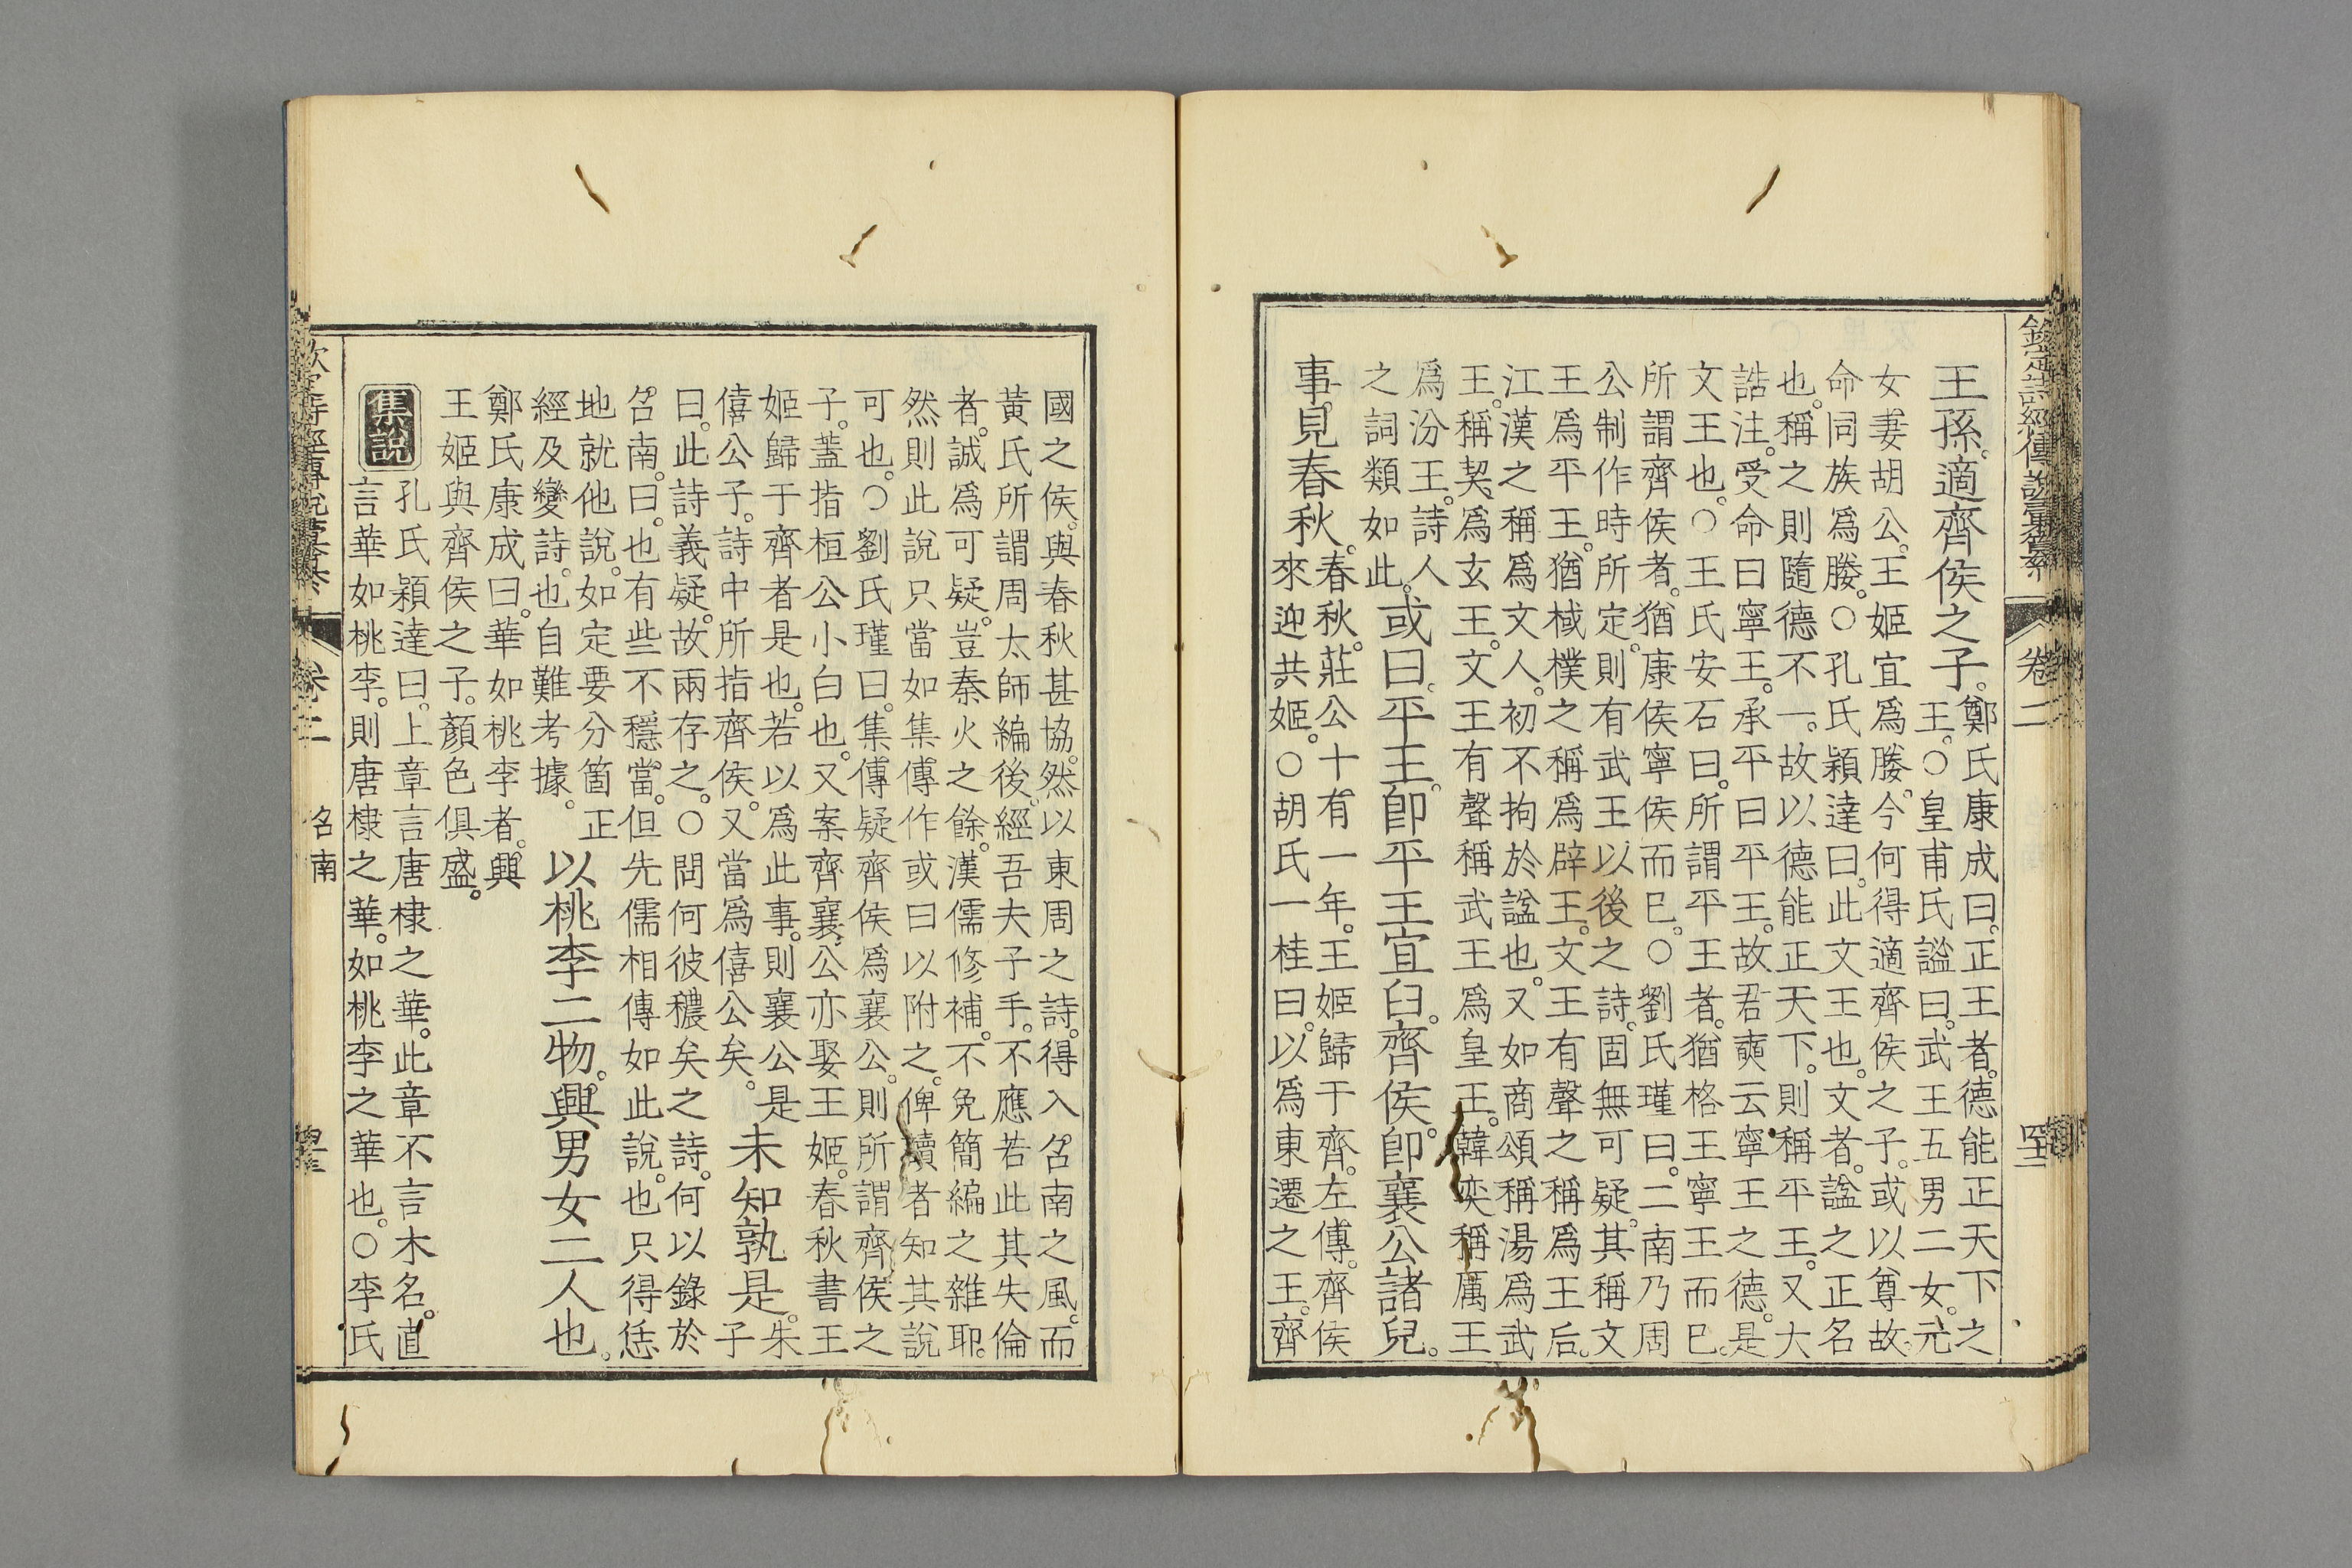 欽定詩經傳說彙纂 卷二
王孫。適齊侯之子。
鄭氏康成曰。正王者。德能正天下之
王。○皇甫氏謐曰。武王五男二女。元
女妻胡公。王姬宜爲媵。今何得適齊侯之子。或以尊故。
命同族爲媵。○孔氏穎達曰。此文王也。文者。諡之正名
也。稱之則隨德不一。故以德能正天下。則稱平王。又大
誥注。受命曰寧王。承平曰平王。故君奭云寧王之德。是
文王也。○王氏安石曰。所謂平王者。猶格王寧王而已。
所謂齊侯者。猶康侯寧侯而已。○劉氏瑾曰。二南乃周
公制作時所定。則有武王以後之詩。固無可疑。其稱文
王爲平王。猶棫樸之稱爲辟王。文王有聲之稱爲王后。
江漢之稱爲文人。初不拘於諡也。又如商頌稱湯爲武
王。稱契爲玄王。文王有聲稱武王爲皇王。韓奕稱厲王
爲汾王。詩人
之詞類如此。
或曰。平王。卽平王宜臼。齊侯。卽襄公諸兒。
事見春秋。
春秋。莊公十有一年。王姬歸于齊。左傳。齊侯
來迎共姬。○胡氏一桂曰。以爲東遷之王。齊
國之侯。與春秋甚協。然以東周之詩。得入召南之風。而
黃氏所謂周太師編後。經吾夫子手。不應若此其失倫
者。誠爲可疑。豈秦火之餘。漢儒修補。不免簡編之雜耶。
然則此說只當如集傳作或曰以附之。俾讀者知其說
可也。○劉氏瑾曰。集傳疑齊侯爲襄公。則所謂齊侯之
子。蓋指桓公小白也。又案齊襄公亦娶王姬。春秋書王
姬歸于齊者是也。若以爲此事。則襄公是
僖公子。詩中所指齊侯。又當爲僖公矣。
未知孰是。
朱子
曰。此詩義疑。故兩存之。○問何彼穠矣之詩。何以錄於
召南。曰。也有些不穩當。但先儒相傳如此說。也只得恁
地就他說。如定要分箇正
經及變詩。也自難考據。
以桃李二物。興男女二人也。
鄭氏康成曰。華如桃李者。興
王姬與齊侯之子。顏色俱盛。
集說
孔氏穎達曰。上章言唐棣之華。此章不言木名。直
言華如桃李。則唐棣之華。如桃李之華也。○李氏
卷二 召南